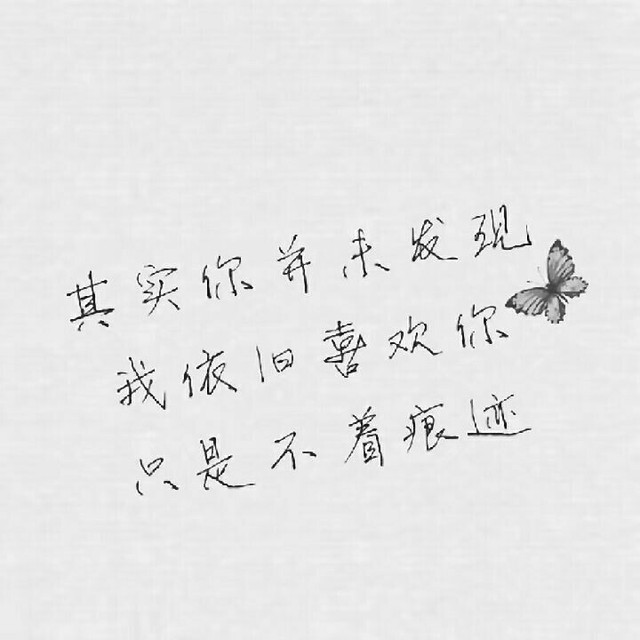 其实你并未发现
我依旧喜欢你
只是不着痕迹